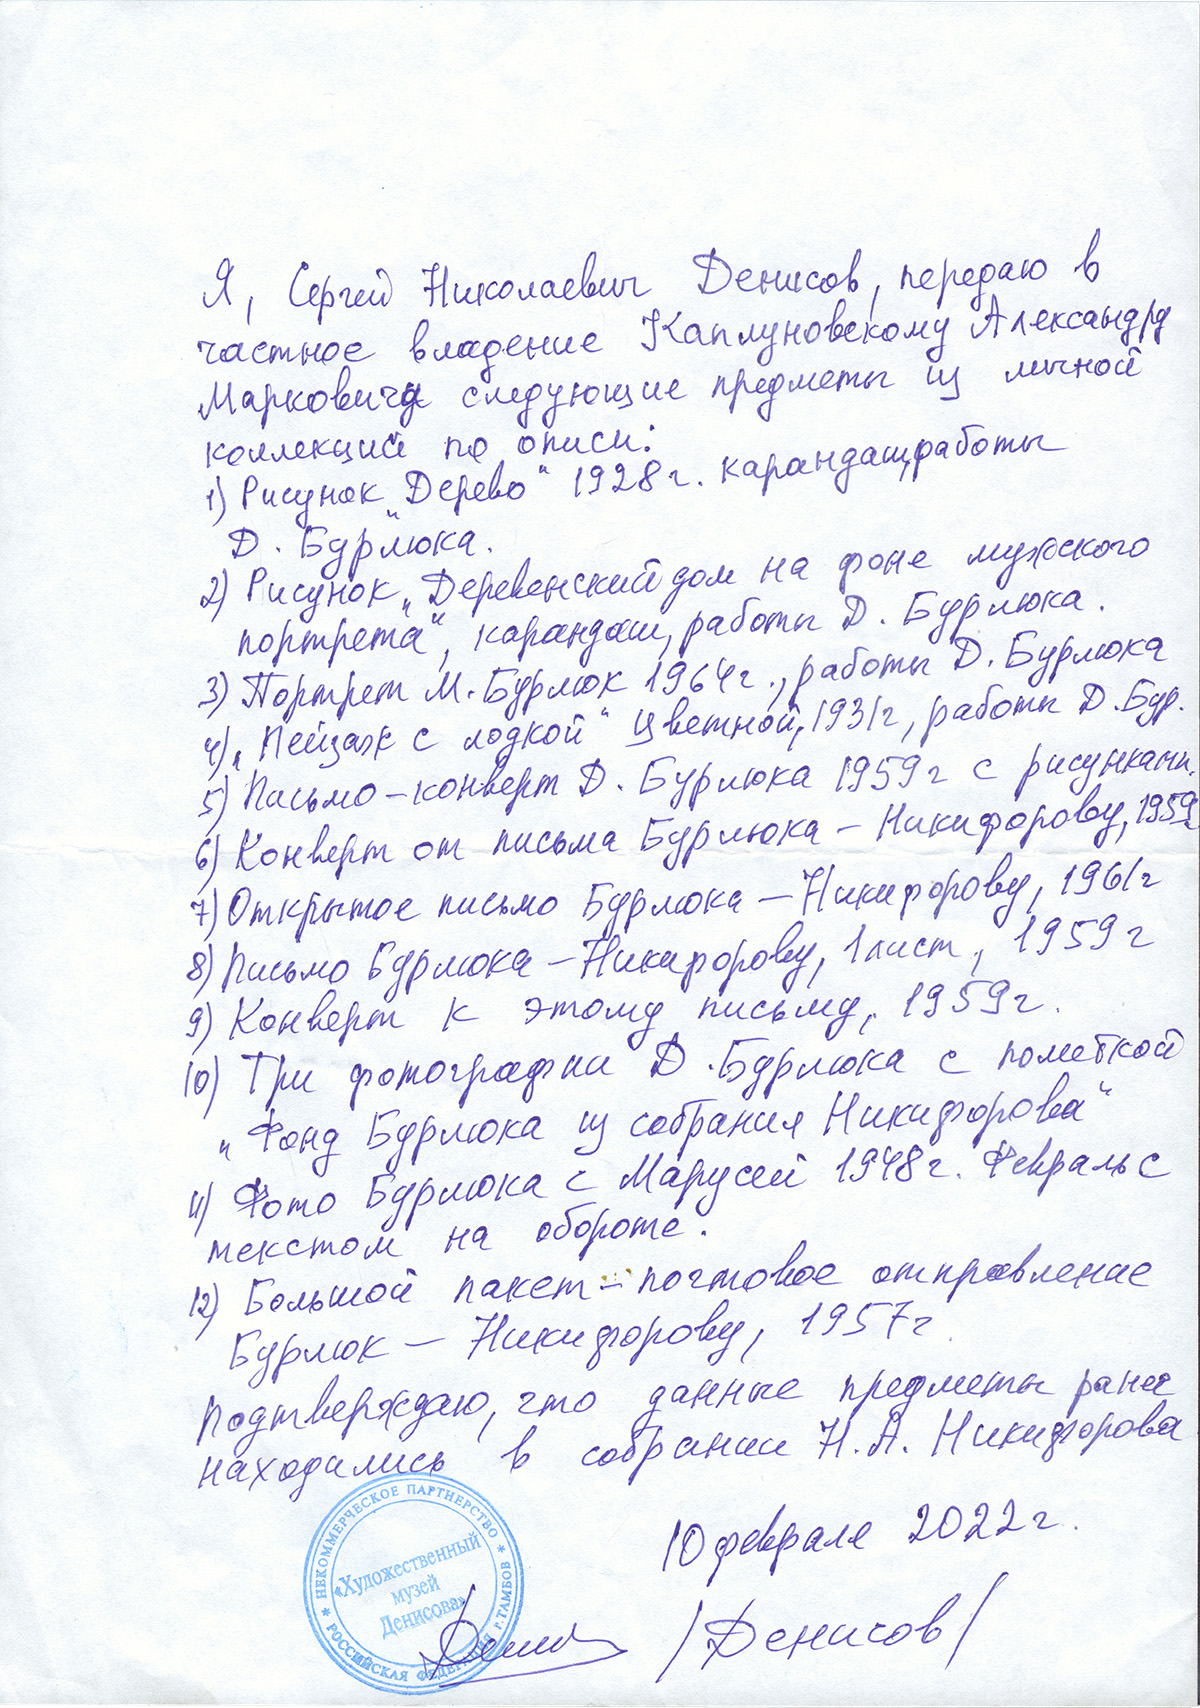 Я, Сергей Николаевич Денисов, передаю в
частное владение Каплуновскому Александру
Марковичу следующие предметы из личной
коллекций по описи:
1) Рисунок „Дерево“ 1928 г. карандаш, работы
Д. Бурлюка.
2) Рисунок „Деревенский дом на фоне мужского
портрета“, карандаш, работы Д. Бурлюка.
3) Портрет М. Бурлюк 1964 г., работы Д. Бурлюка
4) „Пейзаж с лодкой“ цветной, 1931 г, работы Д. Бур.
5) Письмо – конверт Д. Бурлюка 1959 г с рисунками.
6) Конверт от письма Бурлюка – Никифорову, 1959г.
7) Открытое письмо Бурлюка – Никифорову, 1961 г
8) Письмо Бурлюка – Никифорову, 1 лист, 1959 г
9) Конверт к этому письму, 1959 г.
10) Три фотографии Д. Бурлюка с пометкой
„Фонд Бурлюка из собрания Никифорова“
11) Фото Бурлюка с Марусей 1948 г. Февраль с
текстом на обороте.
12) Большой пакет – почтовое отправление
Бурлюк – Никифорову, 1957 г.
Подтверждаю, что данные предметы ранее
находились в собрании Н. А. Никифорова
10 февраля 2022 г.
/Денисов/
* НЕКОММЕРЧЕСКОЕ ПАРТНЕРСТВО *
РОССИЙСКАЯ ФЕДЕРАЦИЯ Г. ТАМБОВ
«Художественный
музей
Денисова»